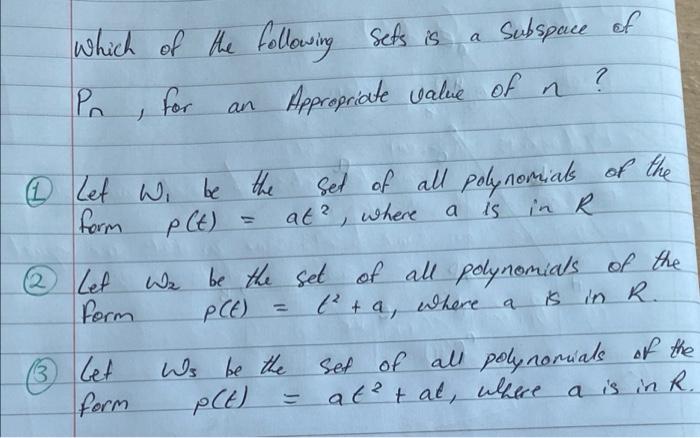 Which of the following Sets is a Subspace of
Pn , for an Appropriate value of n ?
① Let W₁ be the Set of all polynomials of the
form p(t) = at², where a is in R
② Let W₂ be the set of all polynomials of the
form p(t) = t² + a, where a is in R.
③ Let W₃ be the Set of all polynomials of the
form p(t) = at² + at, where a is in R.